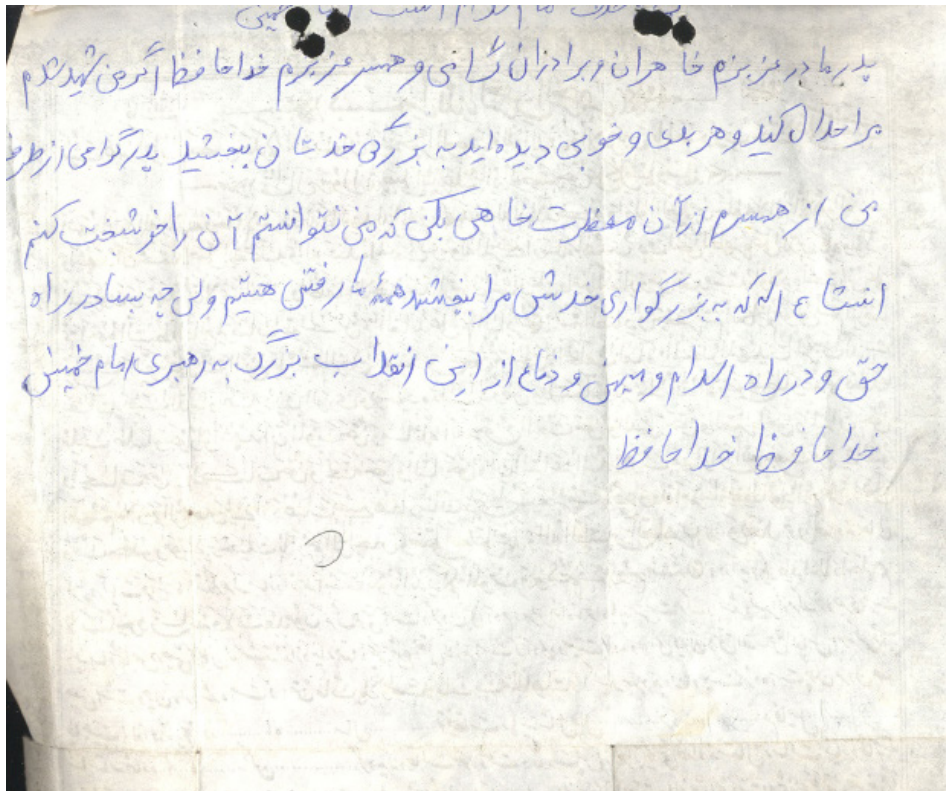 ما اسلام است امام خمینی
پدر مادر عزیزم خاهران و برادران گرامی و همسر عزیزم خداحافظ اگر من شهید شدم
مرا حلال کنید و هر بدی و خوبی دیده اید به بزرگی خدتان ببخشید پدر گرامی از طرف
من از همسرم از آن معظرت خاهی بکنی که من نتوانستم آن را خوشبخت کنم
انشاءاله که به بزرگواری خدش مرا ببخشد همۀ ما رفتنی هستیم ولی چه بسا در راه
حق و در راه اسلام و میهن و دفاع از این انقلاب بزرگ به رهبری امام خمینی
خداحافظ خداحافظ